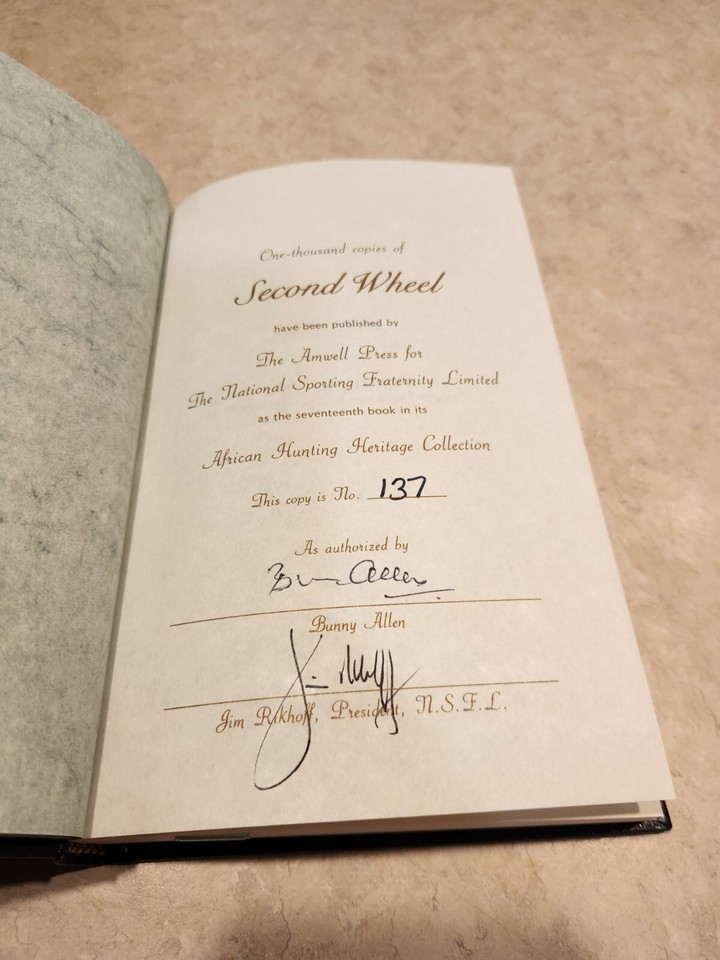 One-thousand copies of
Second Wheel
have been published by
The Amwell Press for
The National Sporting Fraternity Limited
as the seventeenth book in its
African Hunting Heritage Collection
This copy is No. 137
As authorized by
Bunny Allen
Bunny Allen
Jim Rikhoff
Jim Rikhoff, President, N.S.F.L.